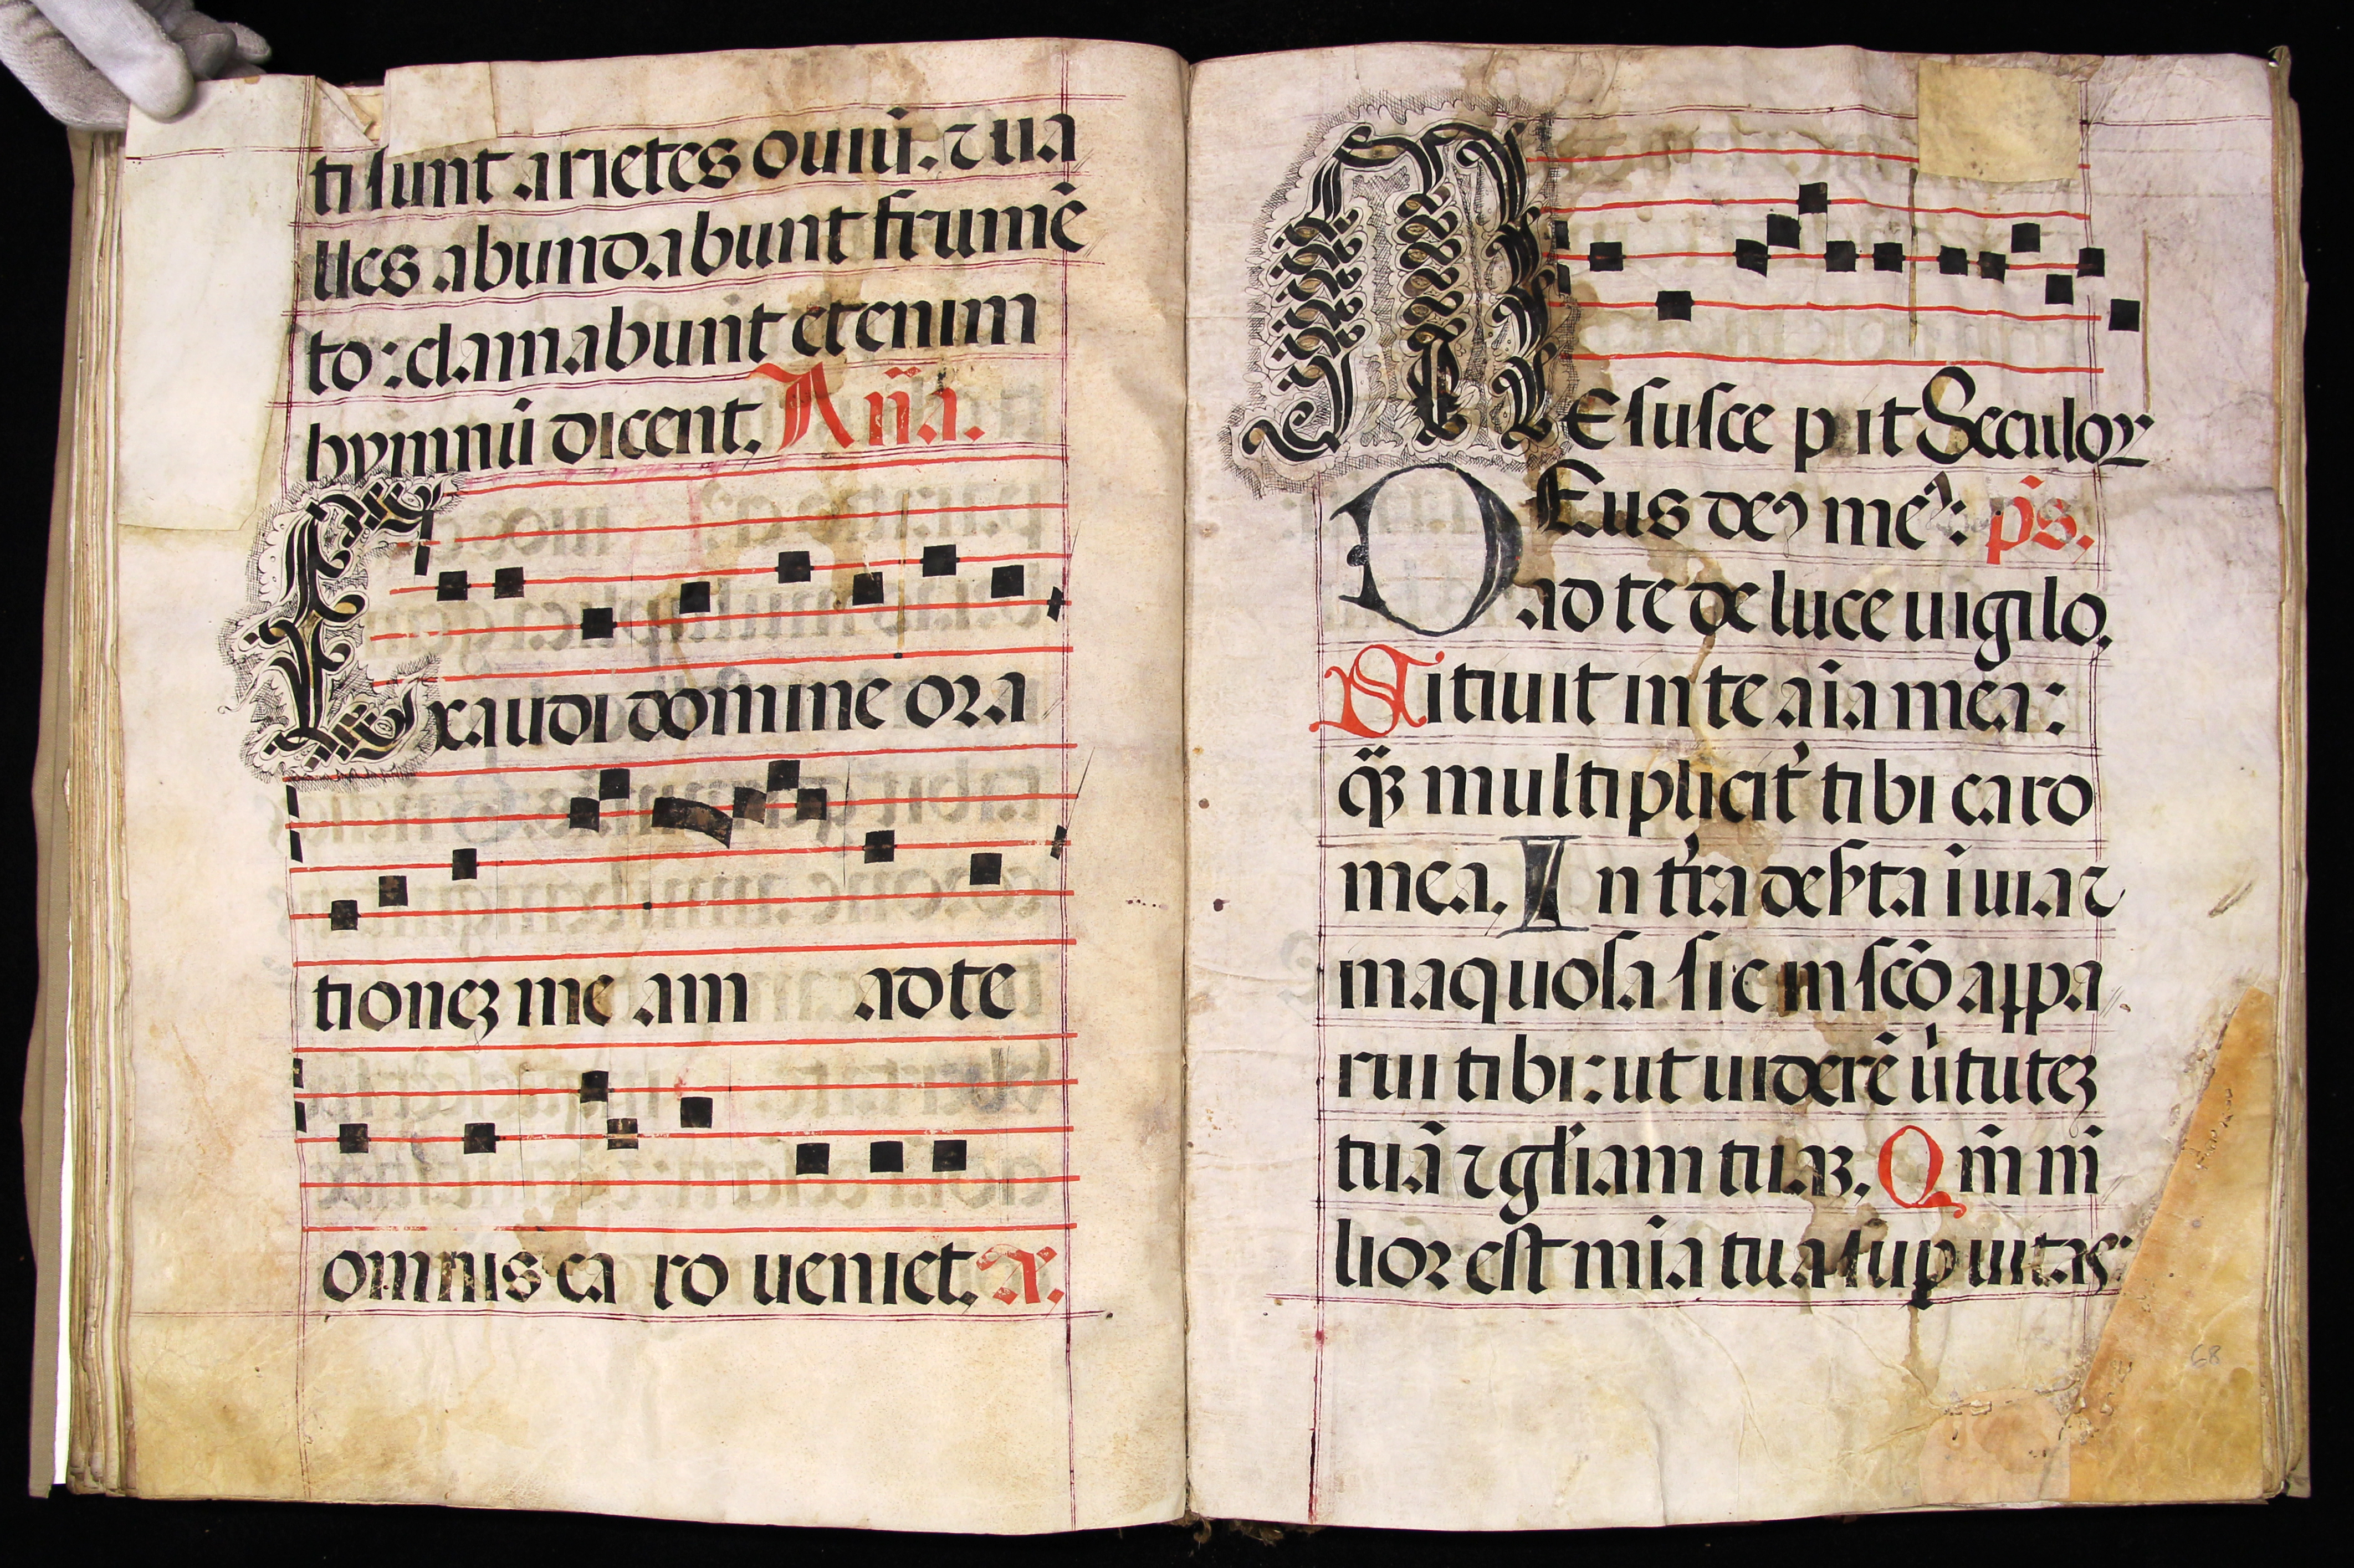 ti sunt arietes ouiū. ⁊ ua
lles abundabunt frumē
to: clamabunt etenim
hymnū dicent. An̄a.
Exaudi domine ora
tioneꝫ me am ad te
omnis ca ro ueniet.
ME susce pit Seculoꝝ
DEus deꝰ meꝰ: ps̄.
ad te de luce uigilo.
Sitiuit in te aīa mea:
qꝫ̄ multipliciť tibi caro
mea. In tr̄a deẜta ī uia ⁊
inaquosa sic in scō appa
rui tibi: ut uiderē ůtuteꝫ
tuā ⁊ gl̄iam tuaꝫ. Qm̄ m̄
lioꝛ est mīa tua suꝑ uitas:
68